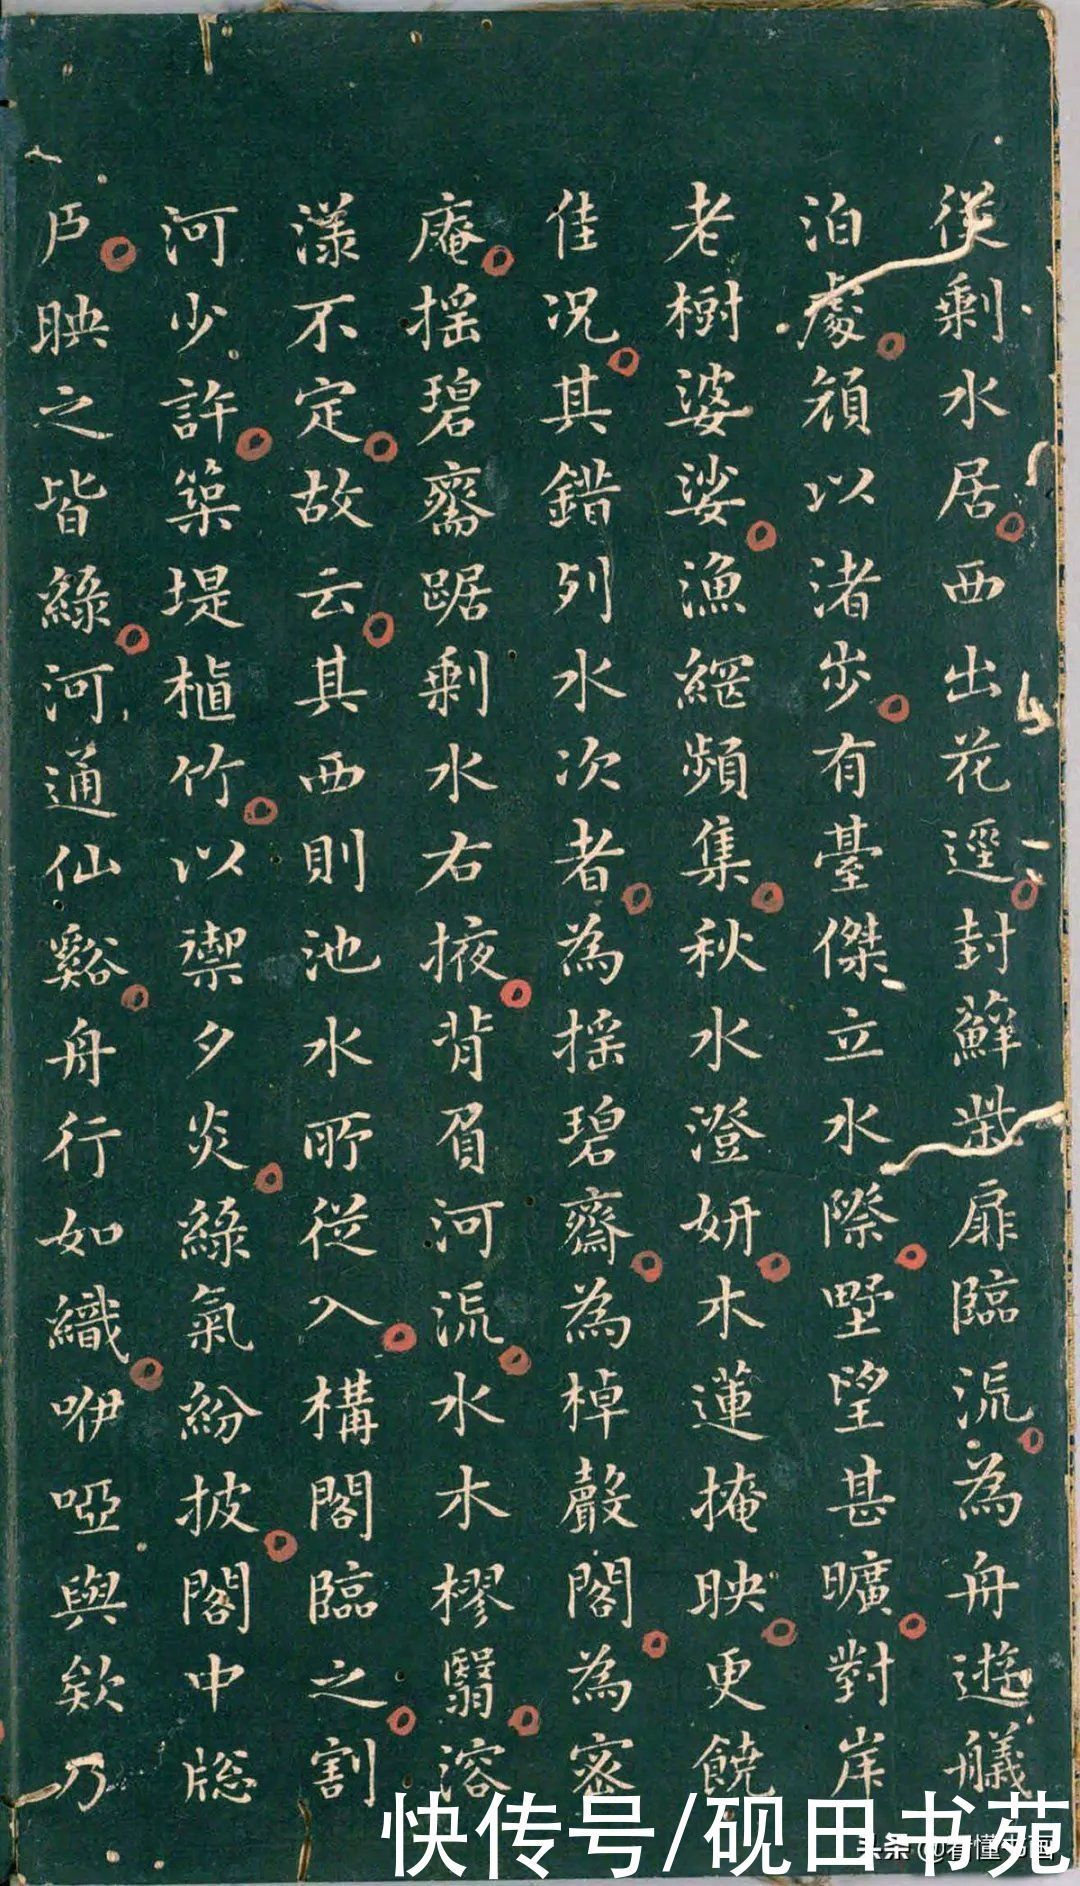 從剩水居西出花逕封蘚㭰扉臨流為舟遊艤
泊處頹以渚步有臺傑立水際墅望甚曠對岸
老樹婆娑漁網頻集秋水澄妍木蓮掩映更饒
佳况其錯列水次者為揺碧齋為棹聲閣為密
庵揺碧齋踞剩水右掖背負河流水木樛翳溶
漾不定故云其西則池水所從入構閣臨之割
河少許築堤植竹以禦夕炎綠氣紛披閣中牕
戶映之皆綠河通仙谿舟行如織咿啞與欸乃
快传号/砚田书苑
头条 @看懂书画